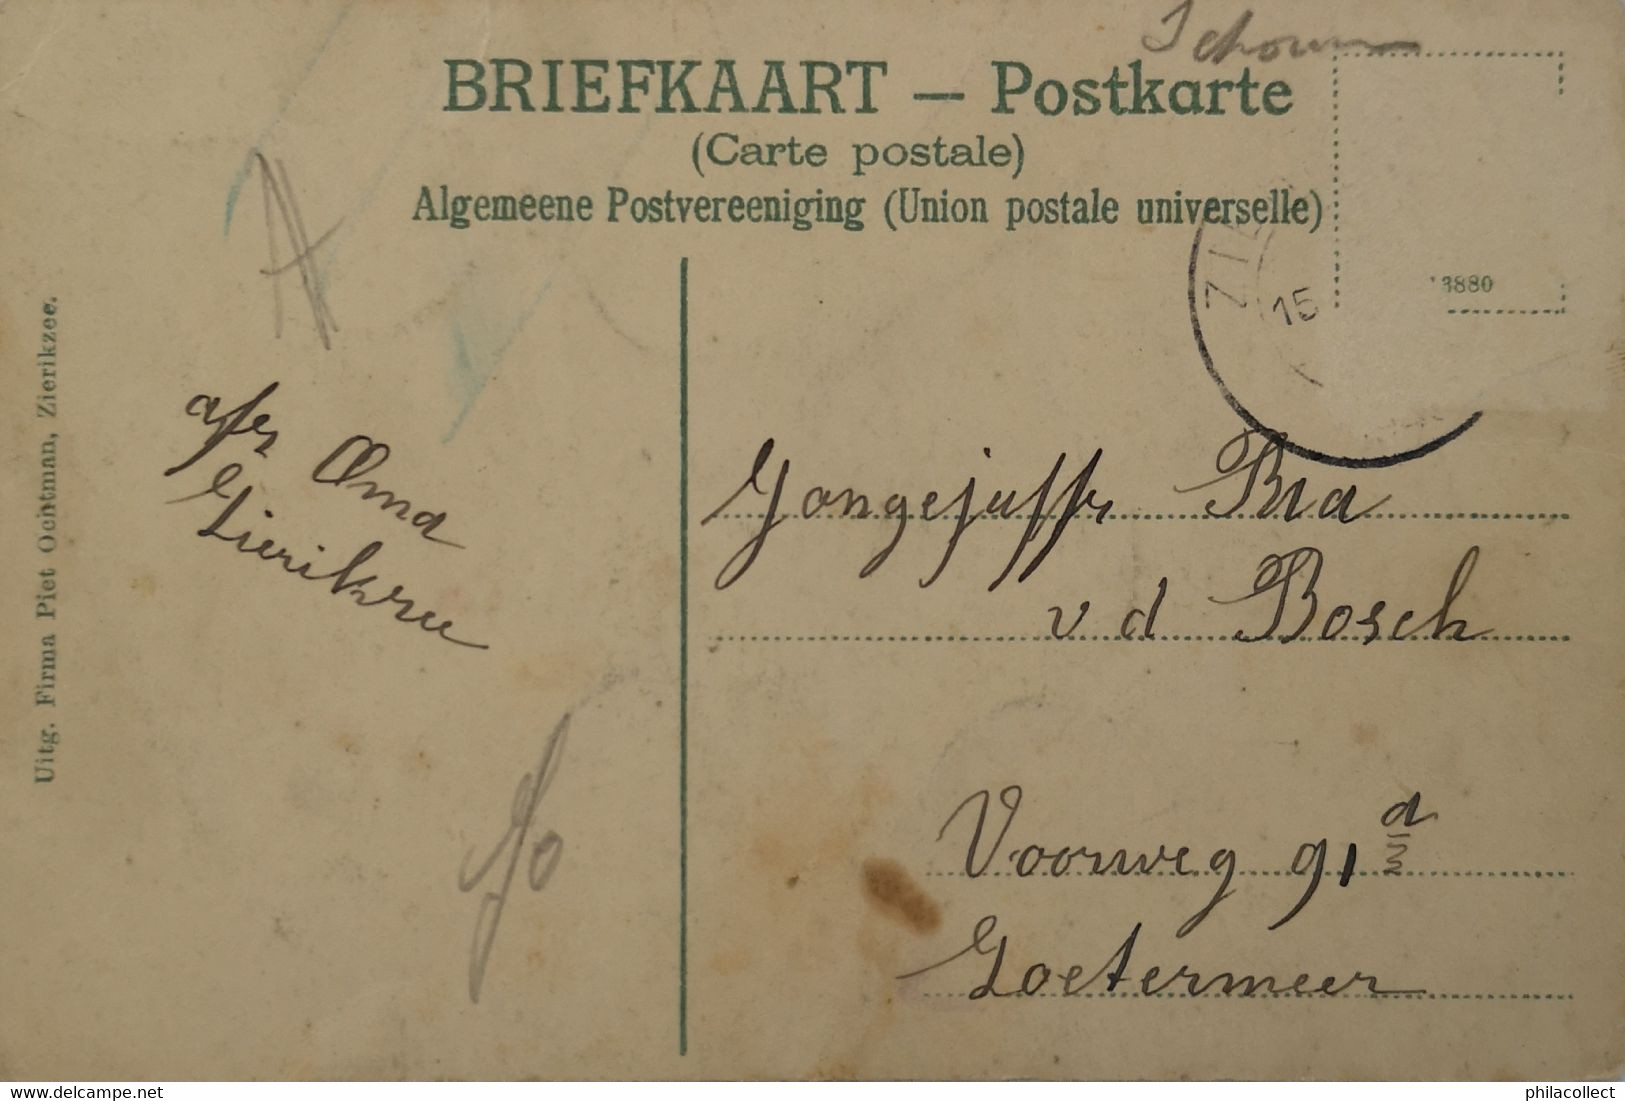 Schouw
BRIEFKAART — Postkarte
(Carte postale)
Algemeene Postvereeniging (Union postale universelle)
ZIE
15
13880
Uitg. Firma Piet Ochtman, Zierikzee.
afz Oma
Zierikzee
Jo
Jongejuffr Ria
v d Bosch
Voorweg 91 a
Zoetermeer
philacollect